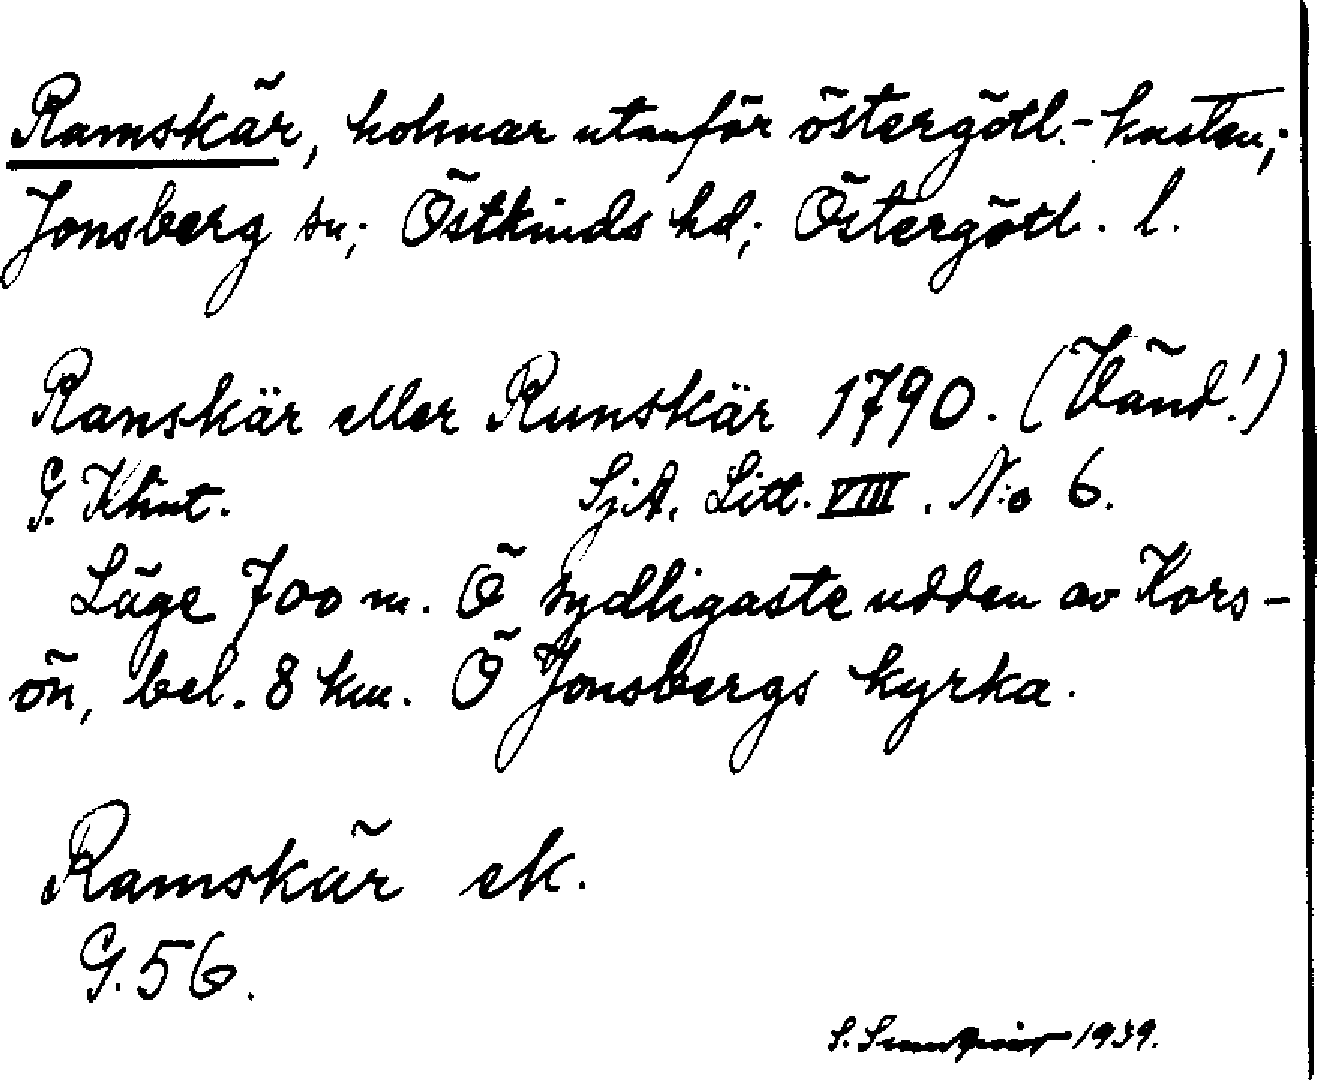 Ramskär, holmar utanför östergötl.-kusten;
Jonsberg sn; Östkinds hd; Östergötl. l.
Ranskär eller Runskär 1790. (Vänd!)
G. Klint. SjA. Litt. VIII. No 6.
Läge 700 m. Ö sydligaste udden av Kors-
ön, bel. 8 km. Ö Jonsbergs kyrka.
Ramskär ek.
G. 56.
S. 1939.